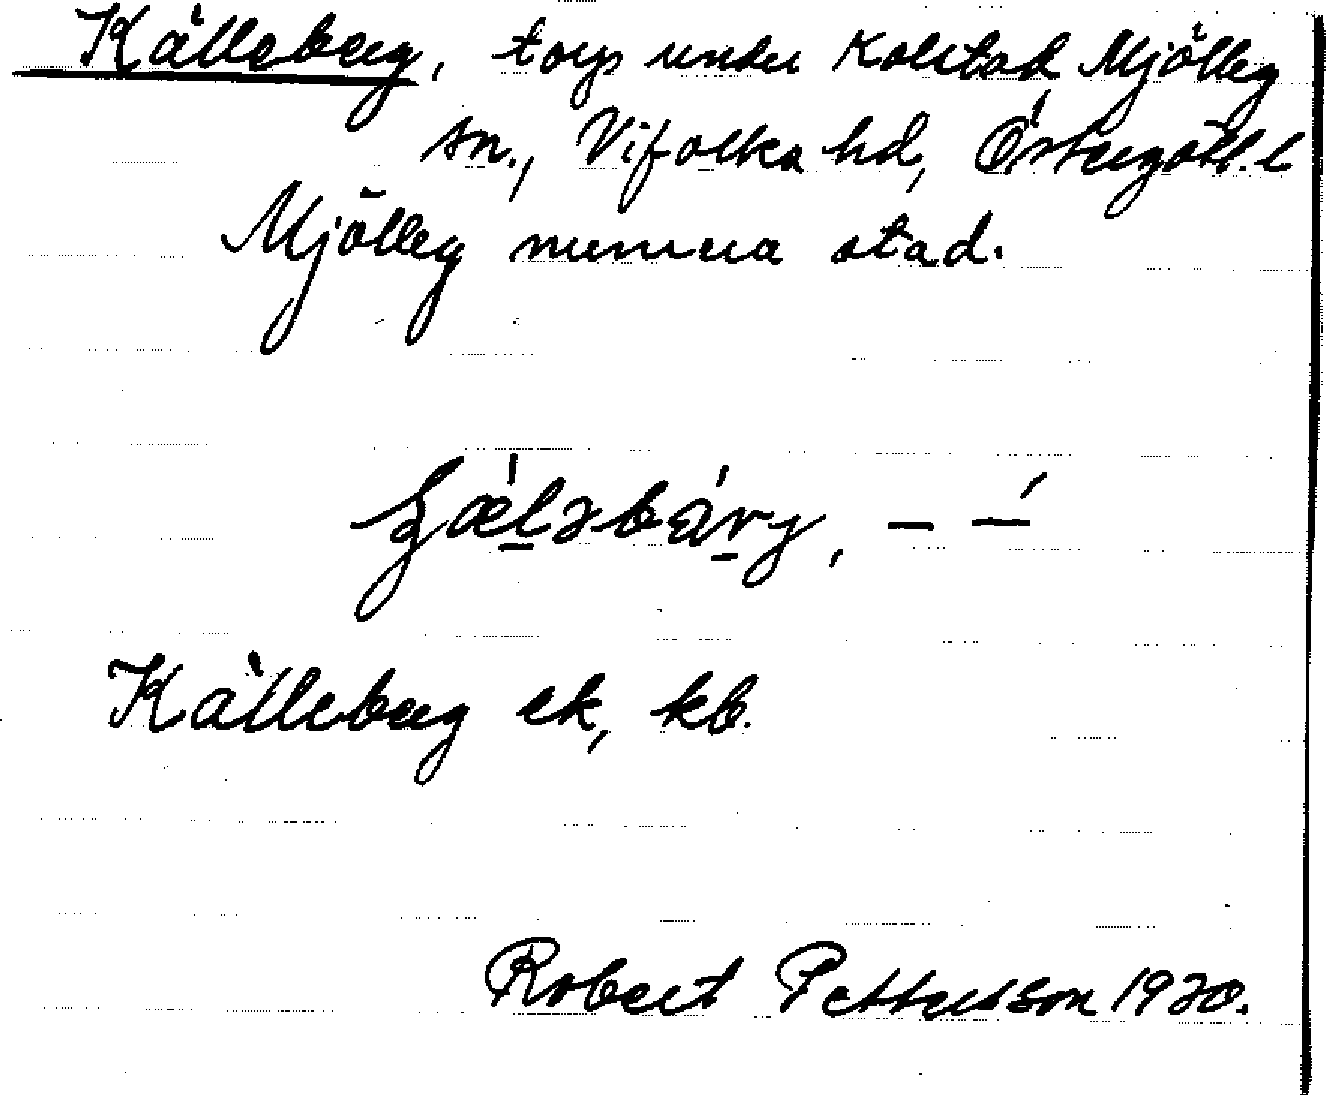 Källeberg, torp under Kolstad Mjölby
sn., Vifolka hd, Östergötl. l
Mjölby numera stad.
Källeberg ek, kb.
Robert Pettersson 1930.